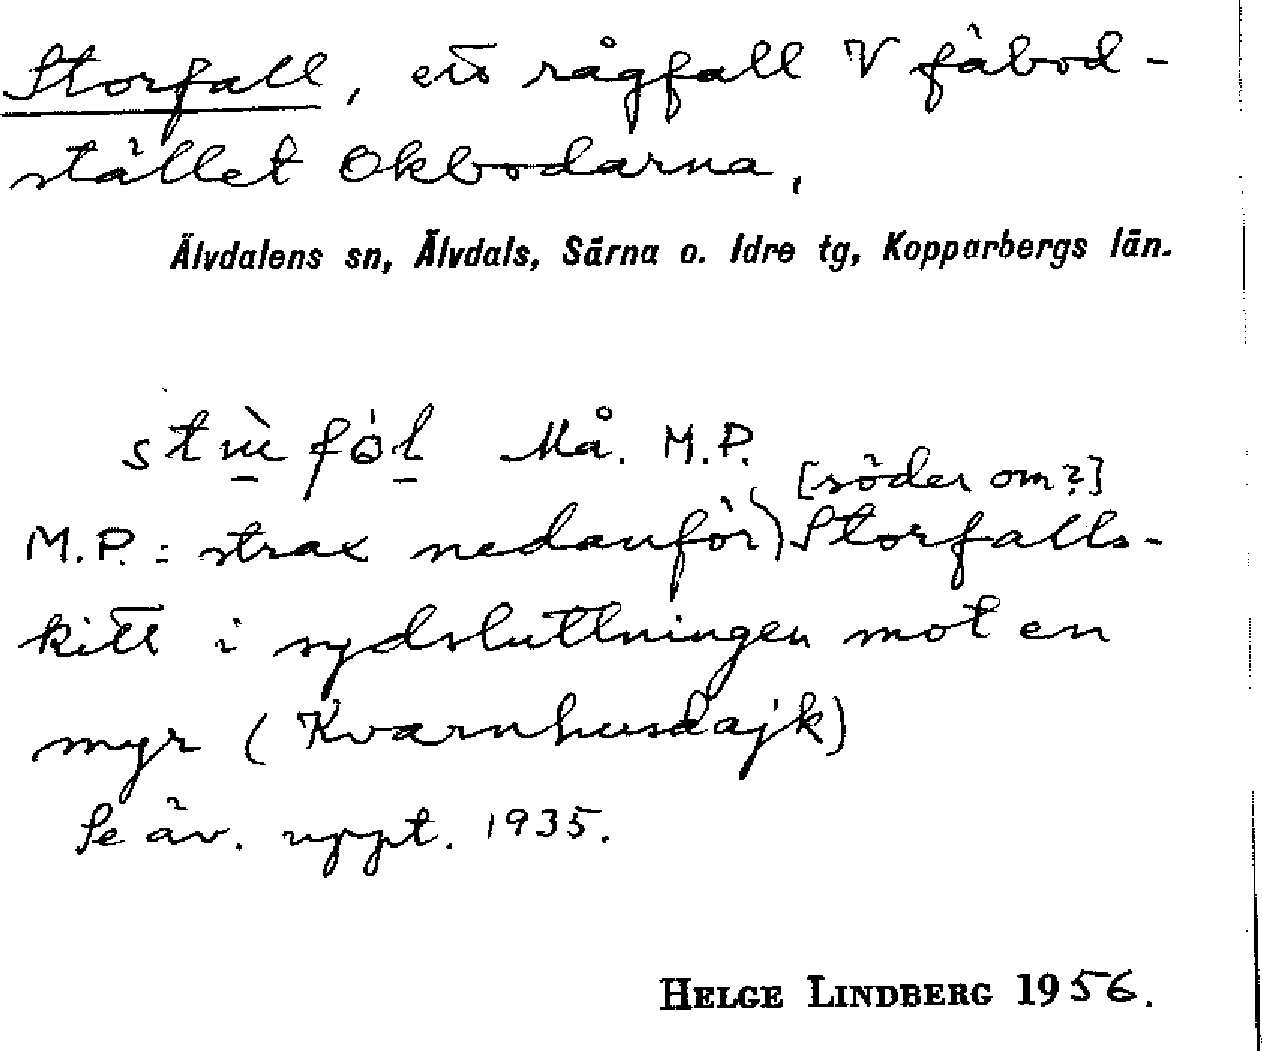 Storfall, ett rågfall V fäbod-
stället Okbodarna,
Älvdalens sn, Älvdals, Särna o. Idre tg, Kopparbergs län.
Må. M.P.
[söder om?]
M.P.: strax nedanför) Storfalls-
kitt i sydsluttningen mot en
myr (Kvarnhusdajk)
Se äv. uppt. 1935.
HELGE LINDBERG 1956.